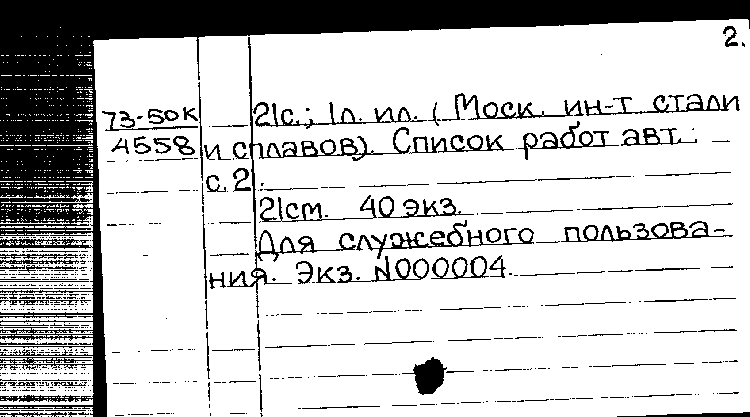 2.
73-50к 21с.; 1л. ил. ( Моск. ин-т стали
4558 и сплавов). Список работ авт.:
с. 2.
21см. 40 экз.
Для служебного пользова-
ния. Экз. N000004.